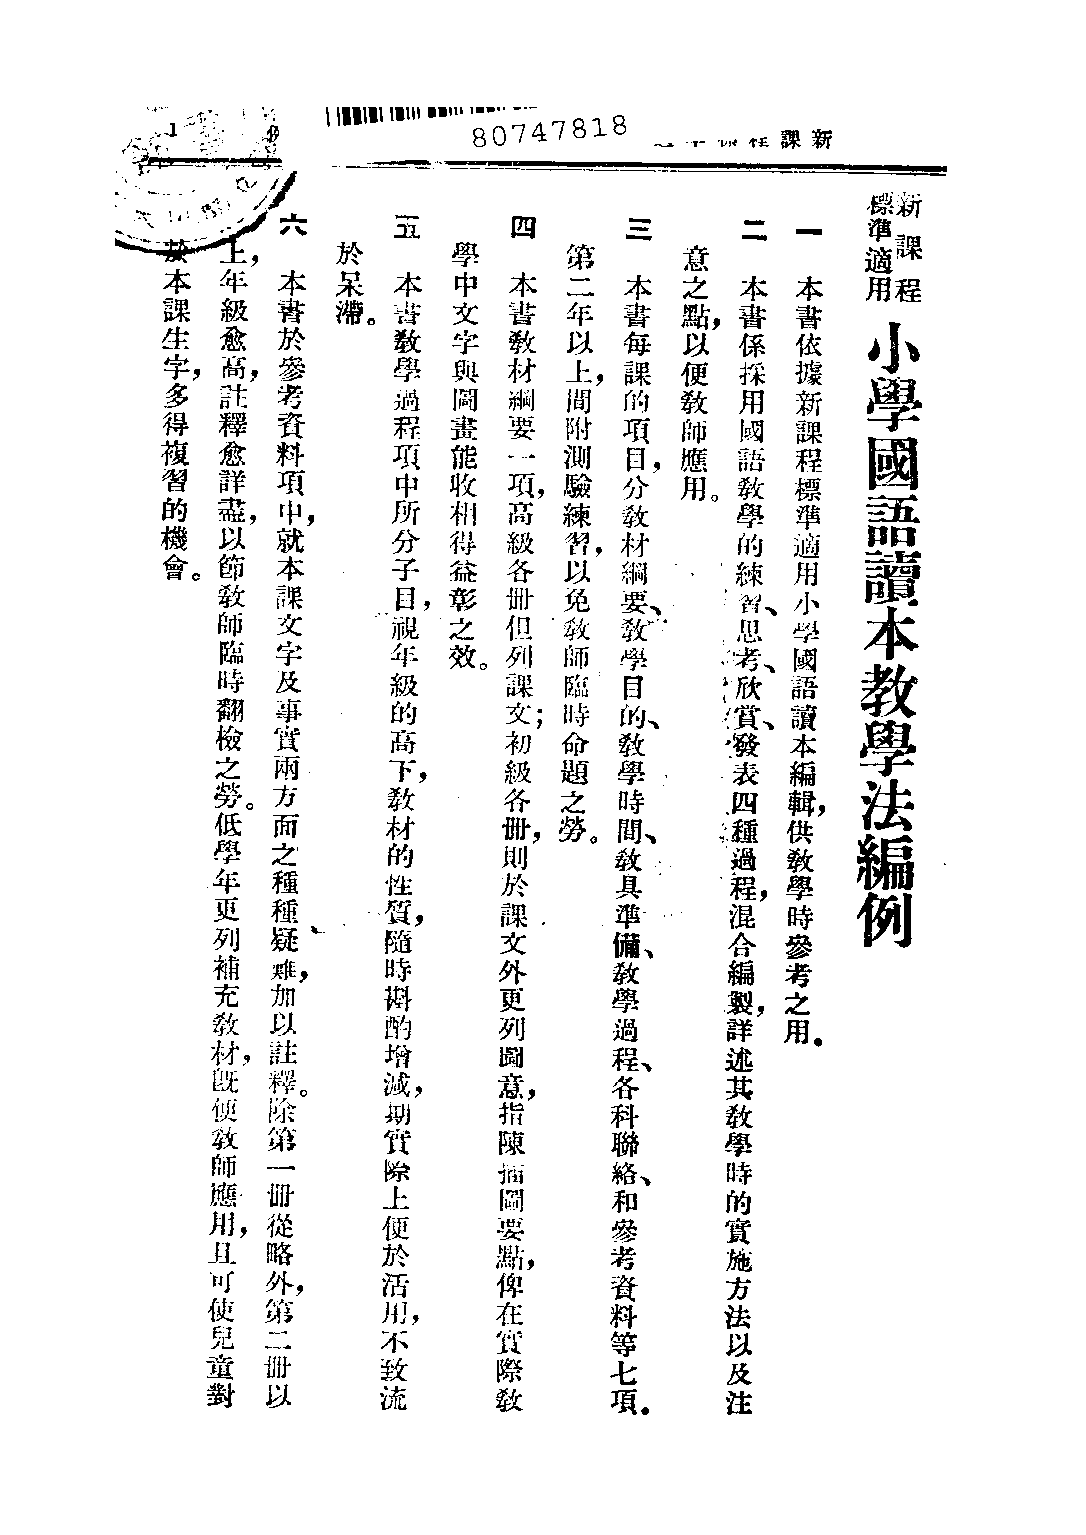 80747818
新課程標準適用
小學國語讀本教學法編例
一　本書依據新課程標準適用小學國語讀本編輯，供教學時參考之用。
二　本書係採用國語教學的練習、思考、欣賞、發表四種過程，混合編製，詳述其教學時的實施方法以及注
意之點，以便教師應用。
三　本書每課的項目，分教材綱要、教學目的、教學時間、教具準備、教學過程、各科聯絡、和參考資料等七項。
第二年以上，間附測驗練習，以免教師臨時命題之勞。
四　本書教材綱要一項，高級各册但列課文；初級各册，則於課文外更列圖意，指陳插圖要點，俾在實際教
學中文字與圖畫能收相得益彰之效。
五　本書教學過程項中所分子目，視年級的高下，教材的性質，隨時斟酌增減，期實際上便於活用，不致流
於呆滯。
六　本書於參考資料項中，就本課文字及事實兩方面之種種疑難，加以註釋。除第一册從略外，第二册以
上，年級愈高，註釋愈詳盡，以節教師臨時翻檢之勞。低學年更列補充教材，既便教師應用，且可使兒童對
於本課生字，多得複習的機會。